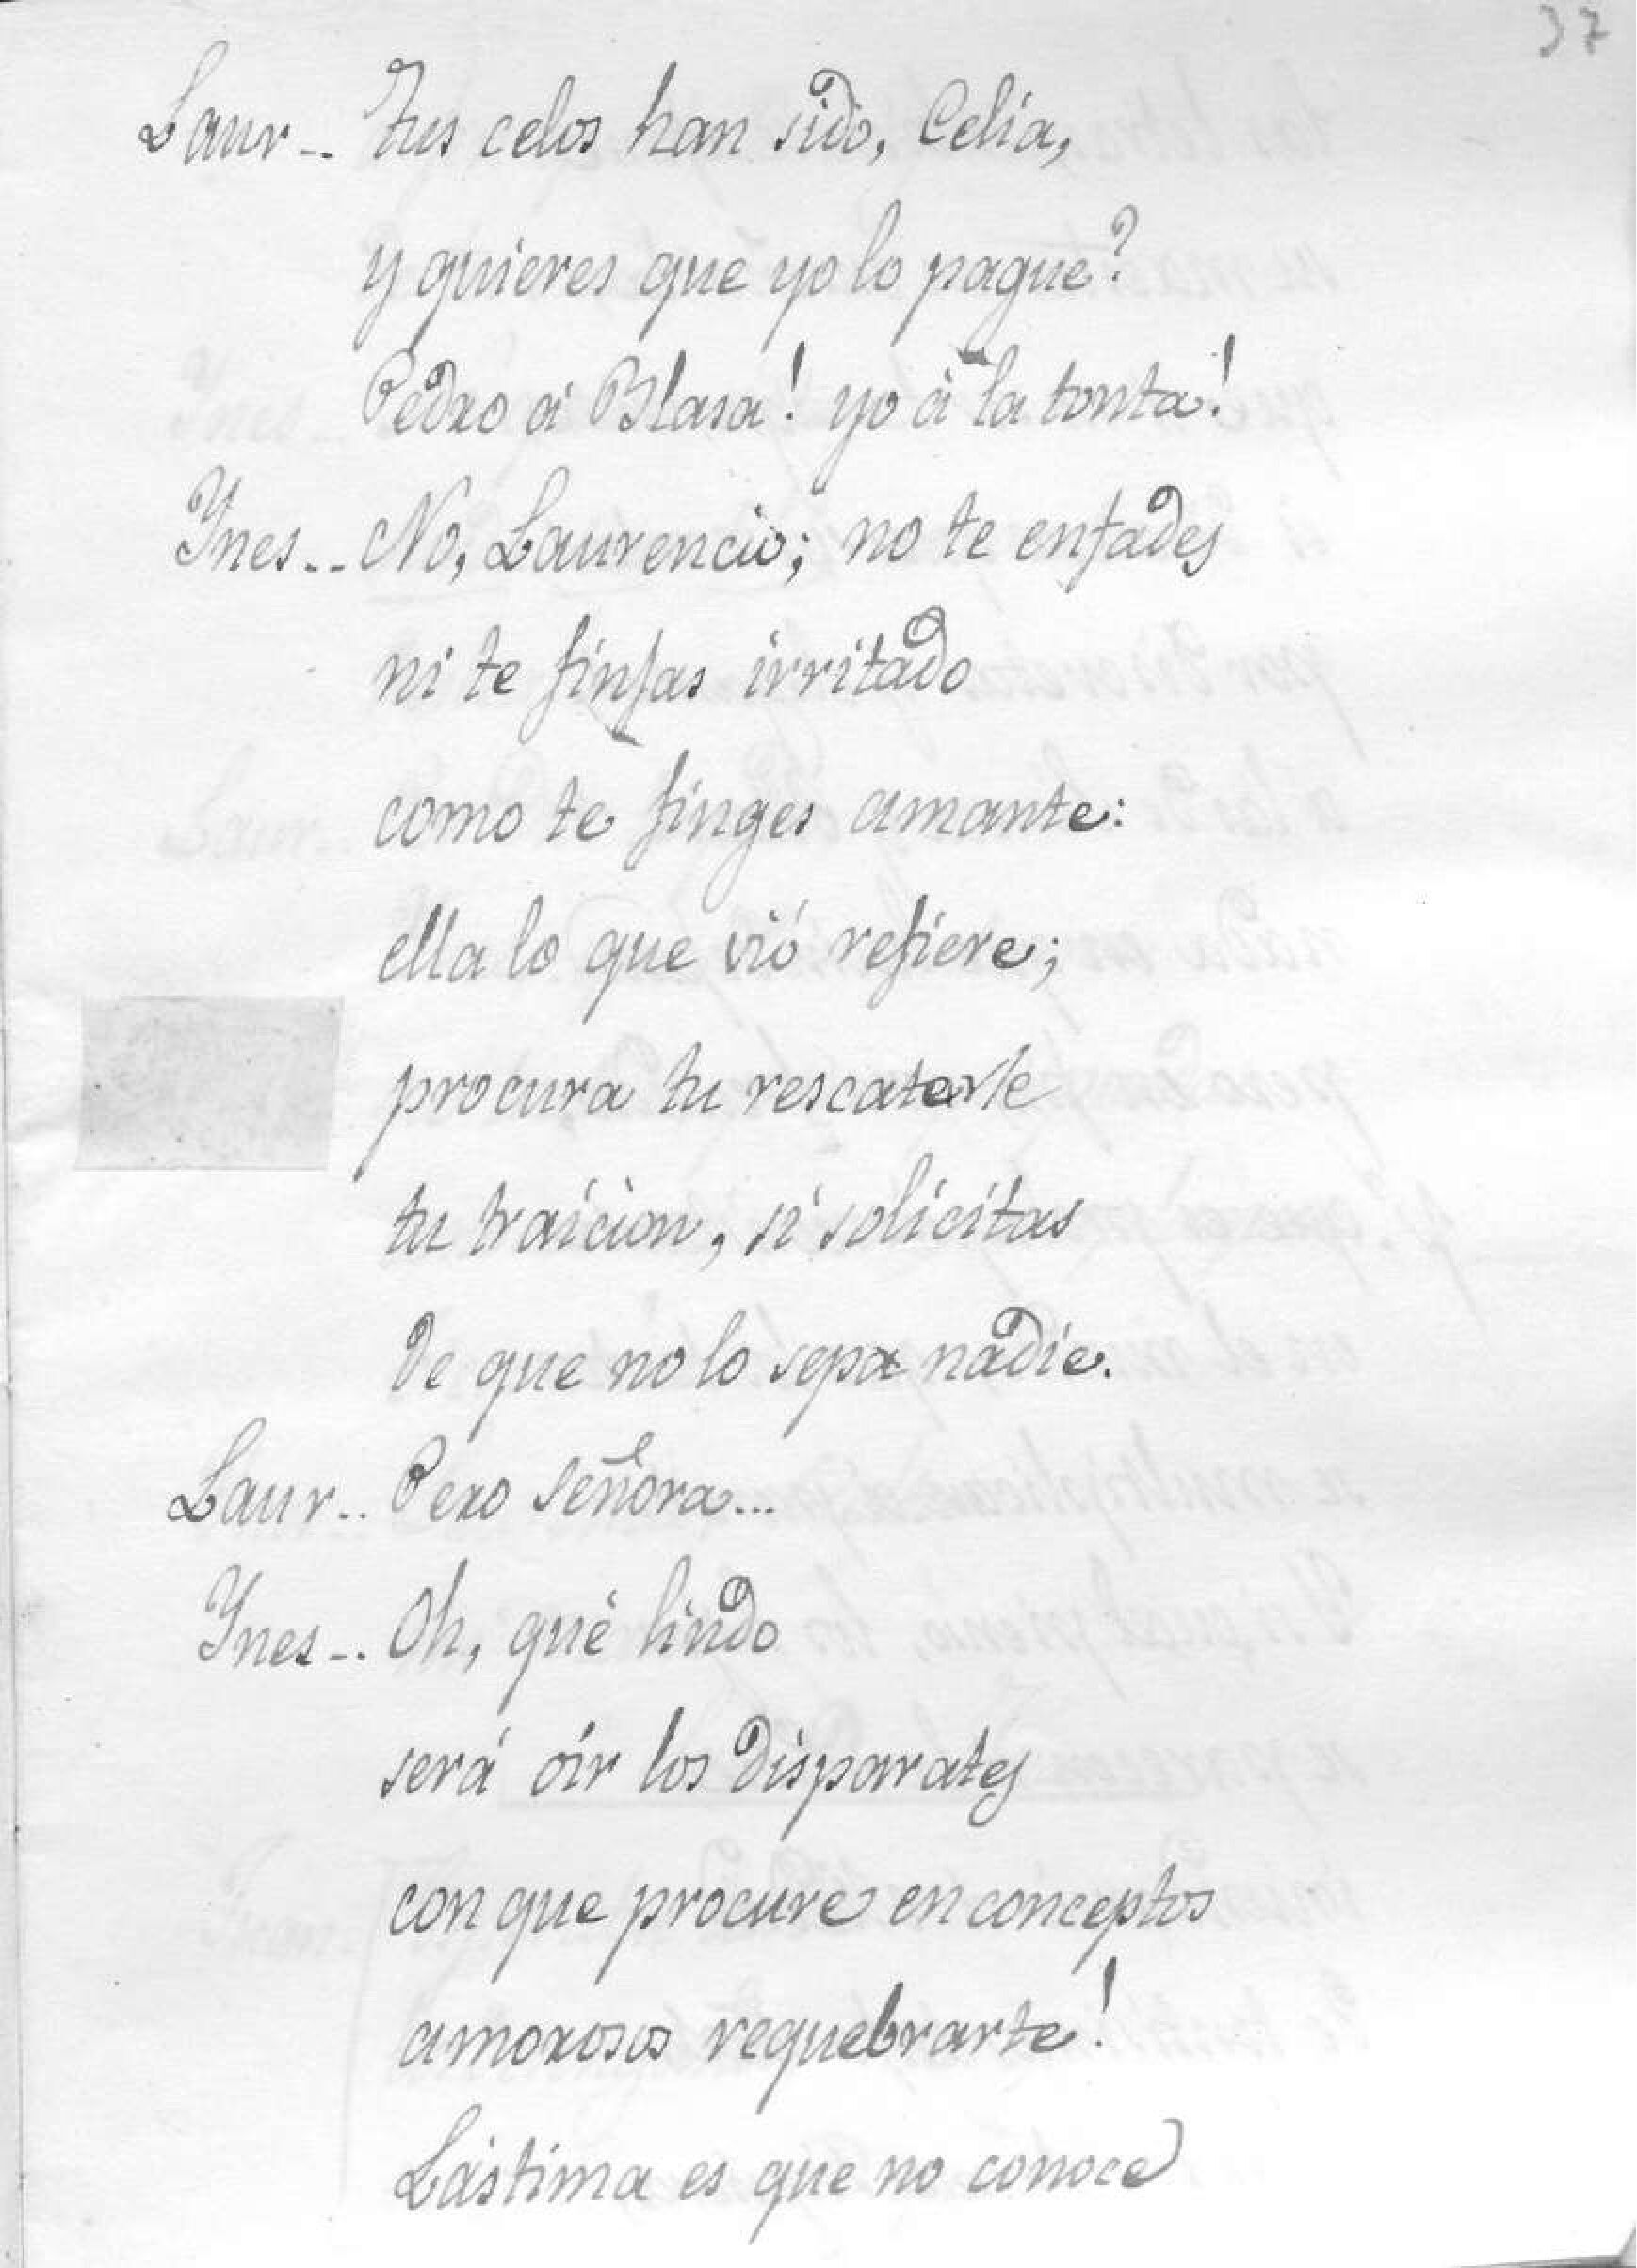 37
Laur-- Tus celos han sido, Celia,
y quieres que yo lo pague?
Pedro á Blasa! yo á la tonta!
Ynes-- No, Laurencio; no te enfades
ni te finjas irritado
como te finges amante:
ella lo que vió refiere;
procura tu rescatarle
tu traicion, si solicitas
de que no lo sepa nadie.
Laur-- Pero señora...
Ynes-- Oh, qué lindo
será oír los disparates
con que procure en conceptos
amorosos requebrarte!
Lástima es que no conoce